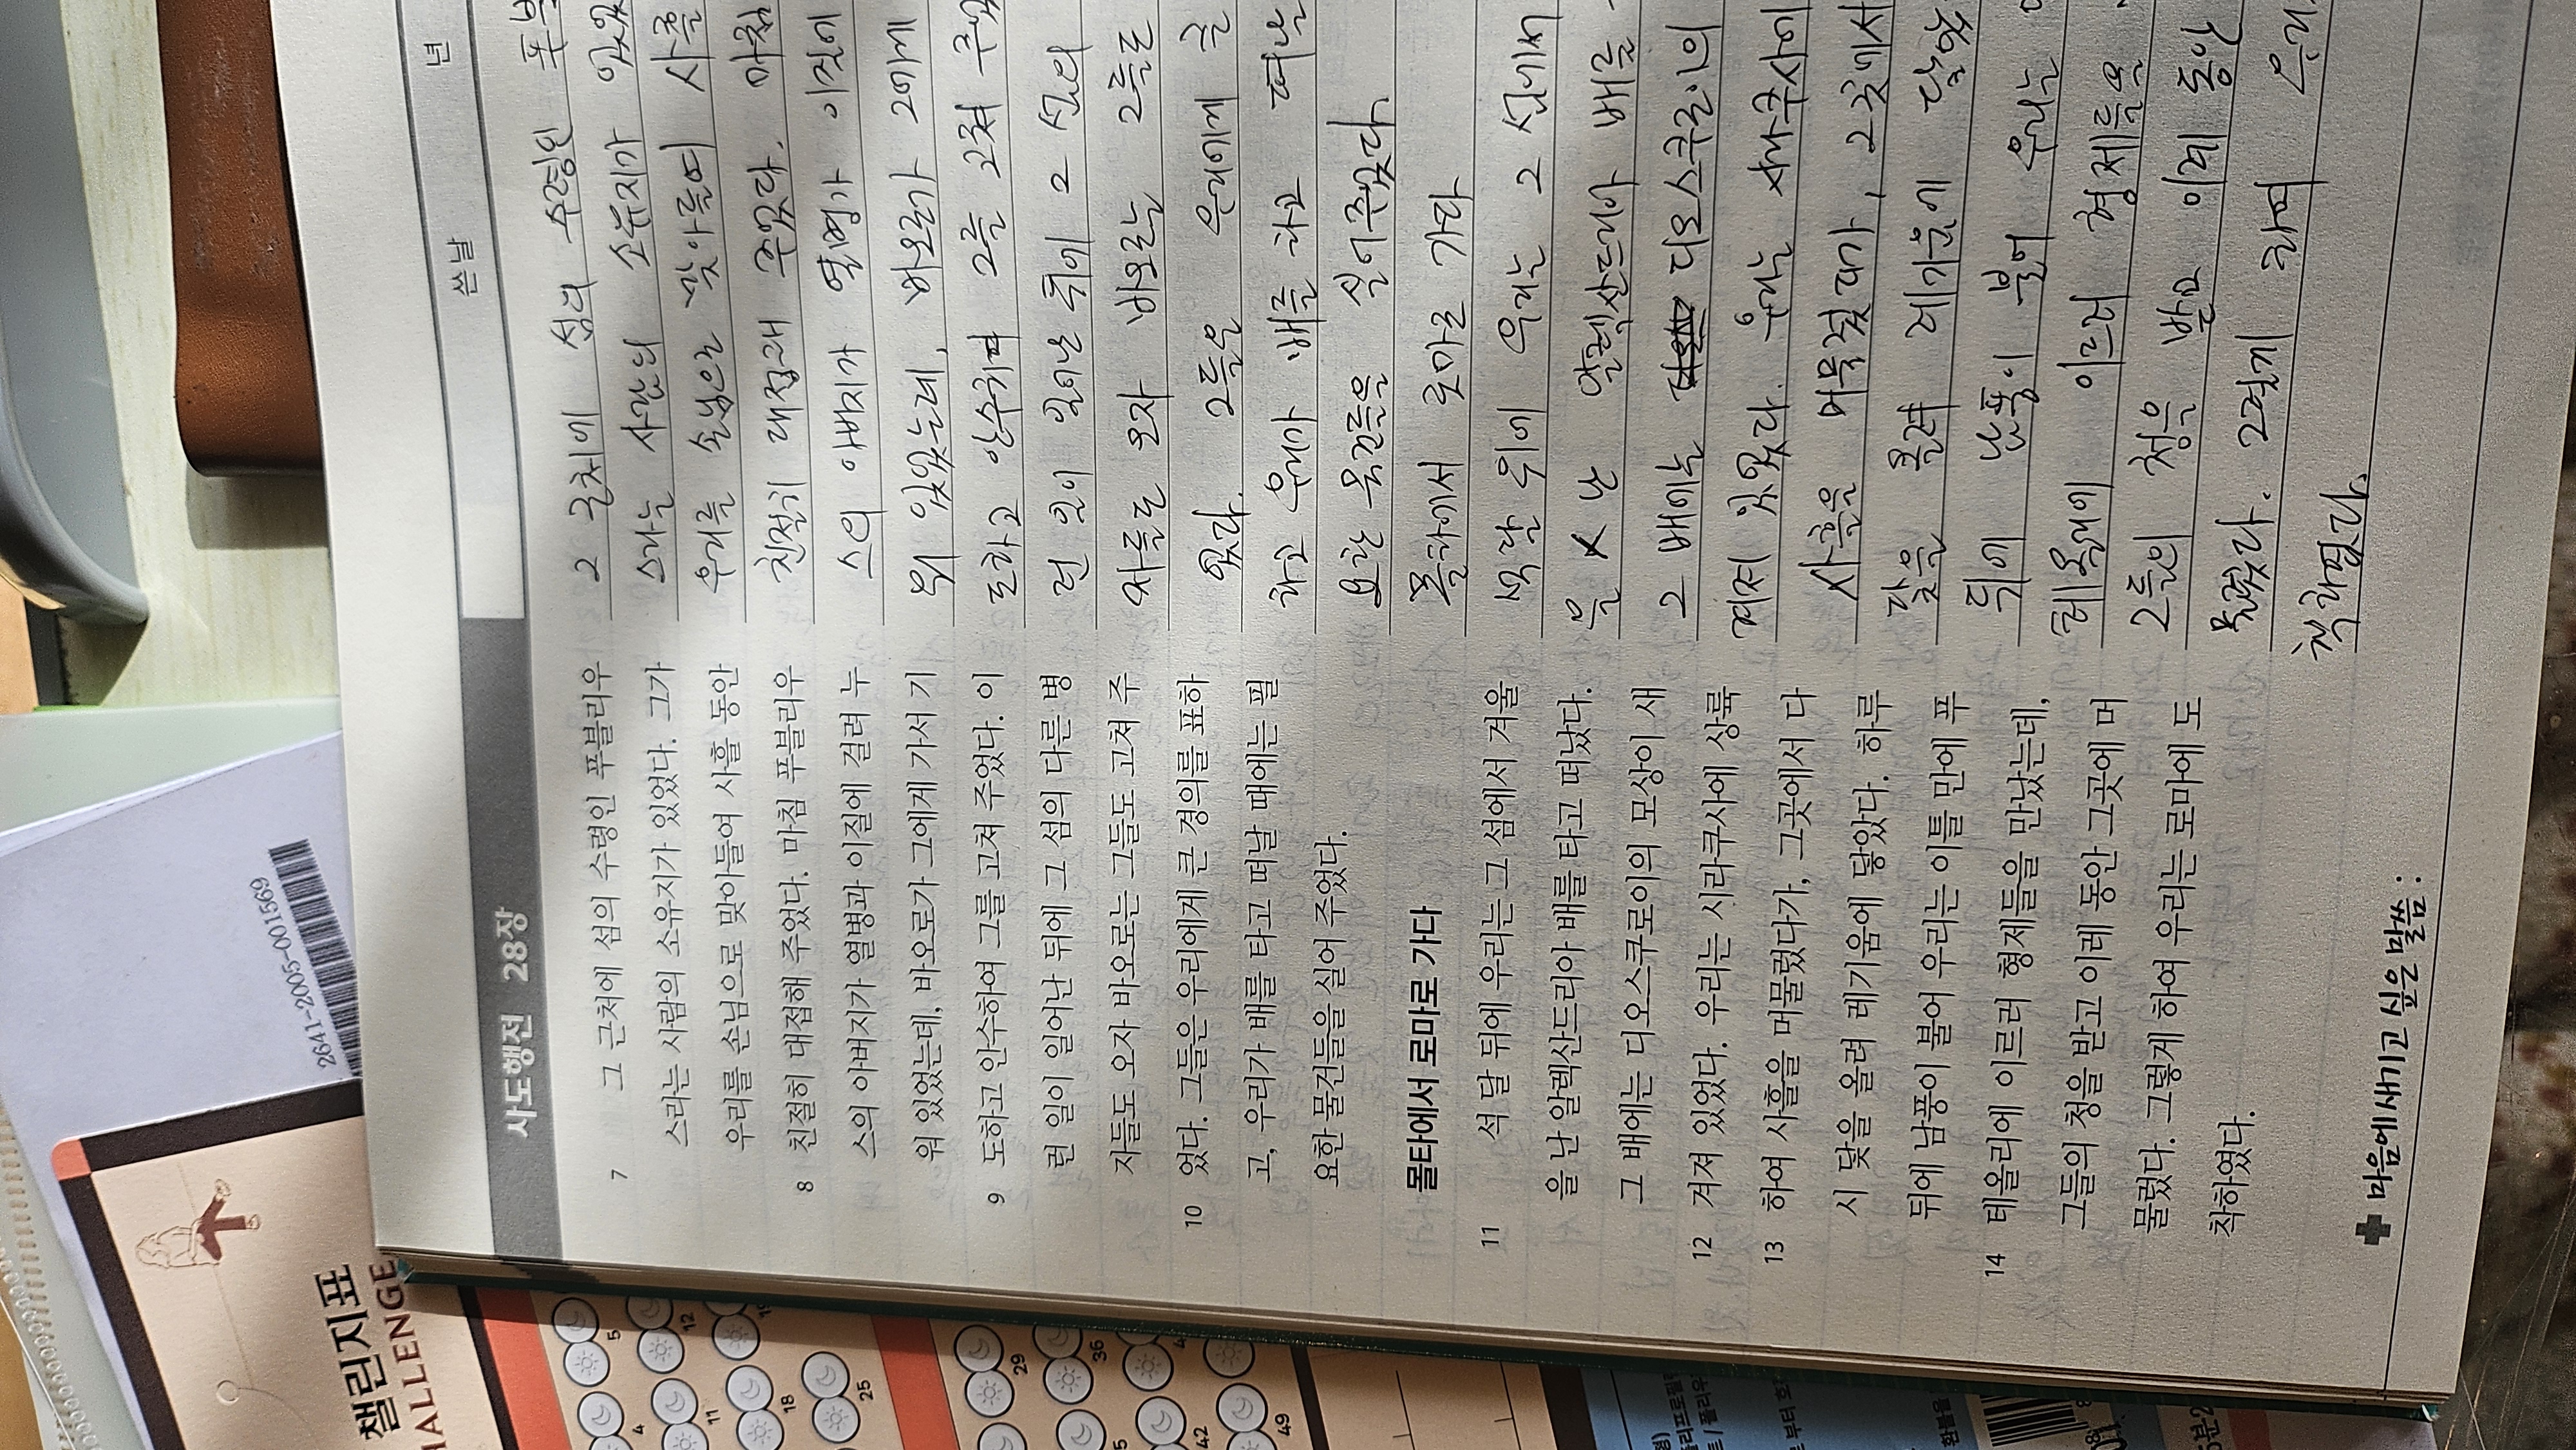 년
쓴 날
사도행전 28장
7 그 근처에 섬의 수령인 푸블리우
스라는 사람의 소유지가 있었다. 그가
우리를 손님으로 맞아들여 사흘 동안
8 친절히 대접해 주었다. 마침 푸블리우
스의 아버지가 열병과 이질에 걸려 누
워 있었는데, 바오로가 그에게 가서 기
9 도하고 안수하여 그를 고쳐 주었다. 이
런 일이 일어난 뒤에 그 섬의 다른 병
자들도 오자 바오로는 그들도 고쳐 주
10 었다. 그들은 우리에게 큰 경의를 표하
고, 우리가 배를 타고 떠날 때에는 필
요한 물건들을 실어 주었다.
몰타에서 로마로 가다
11 석 달 뒤에 우리는 그 섬에서 겨울
을 난 알렉산드리아 배를 타고 떠났다.
그 배에는 디오스쿠로이의 모상이 새
12 겨져 있었다. 우리는 시라쿠사에 상륙
13 하여 사흘을 머물렀다가, 그곳에서 다
시 닻을 올려 레기움에 닿았다. 하루
뒤에 남풍이 불어 우리는 이틀 만에 푸
14 테올리에 이르러 형제들을 만났는데,
그들의 청을 받고 이레 동안 그곳에 머
물렀다. 그렇게 하여 우리는 로마에 도
착하였다.
마음에 새기고 싶은 말씀 :
그 근처에 섬의 수령인 푸블
스라는 사람의 소유지가 있었
우리를 손님으로 맞아들여 사흘
친절히 대접해 주었다. 마침
스의 아버지가 열병가 이질에
워 있었는데, 바오로가 그에게
도하고 안수하여 그를 고쳐 주었
런 일이 일어난 뒤에 그 섬의
자들도 오자 바오로는 그들도
었다. 그들은 우리에게 큰
하고 우리가 배를 타고 떠날
요한 물건들을 실어주었다.
몰타에서 로마로 가다
석달 뒤에 우리는 그 섬에서
을 난 알렉산드리아 배를
그 배에는 디오스쿠로이의
겨져 있었다. 우리는
사흘을 머물렀다가, 그곳에서
닻을 올려 레기움에 닿았
뒤에 남풍이 불어 우리는
테올리에 이르러 형제들을
그들의 청을 받고 이레 동안
물렀다. 그렇게 하여 우리
착하였다.
2641-2005-001569
챌린지표
HALLENGE
4
5
11
12
18
25
29
36
42
49